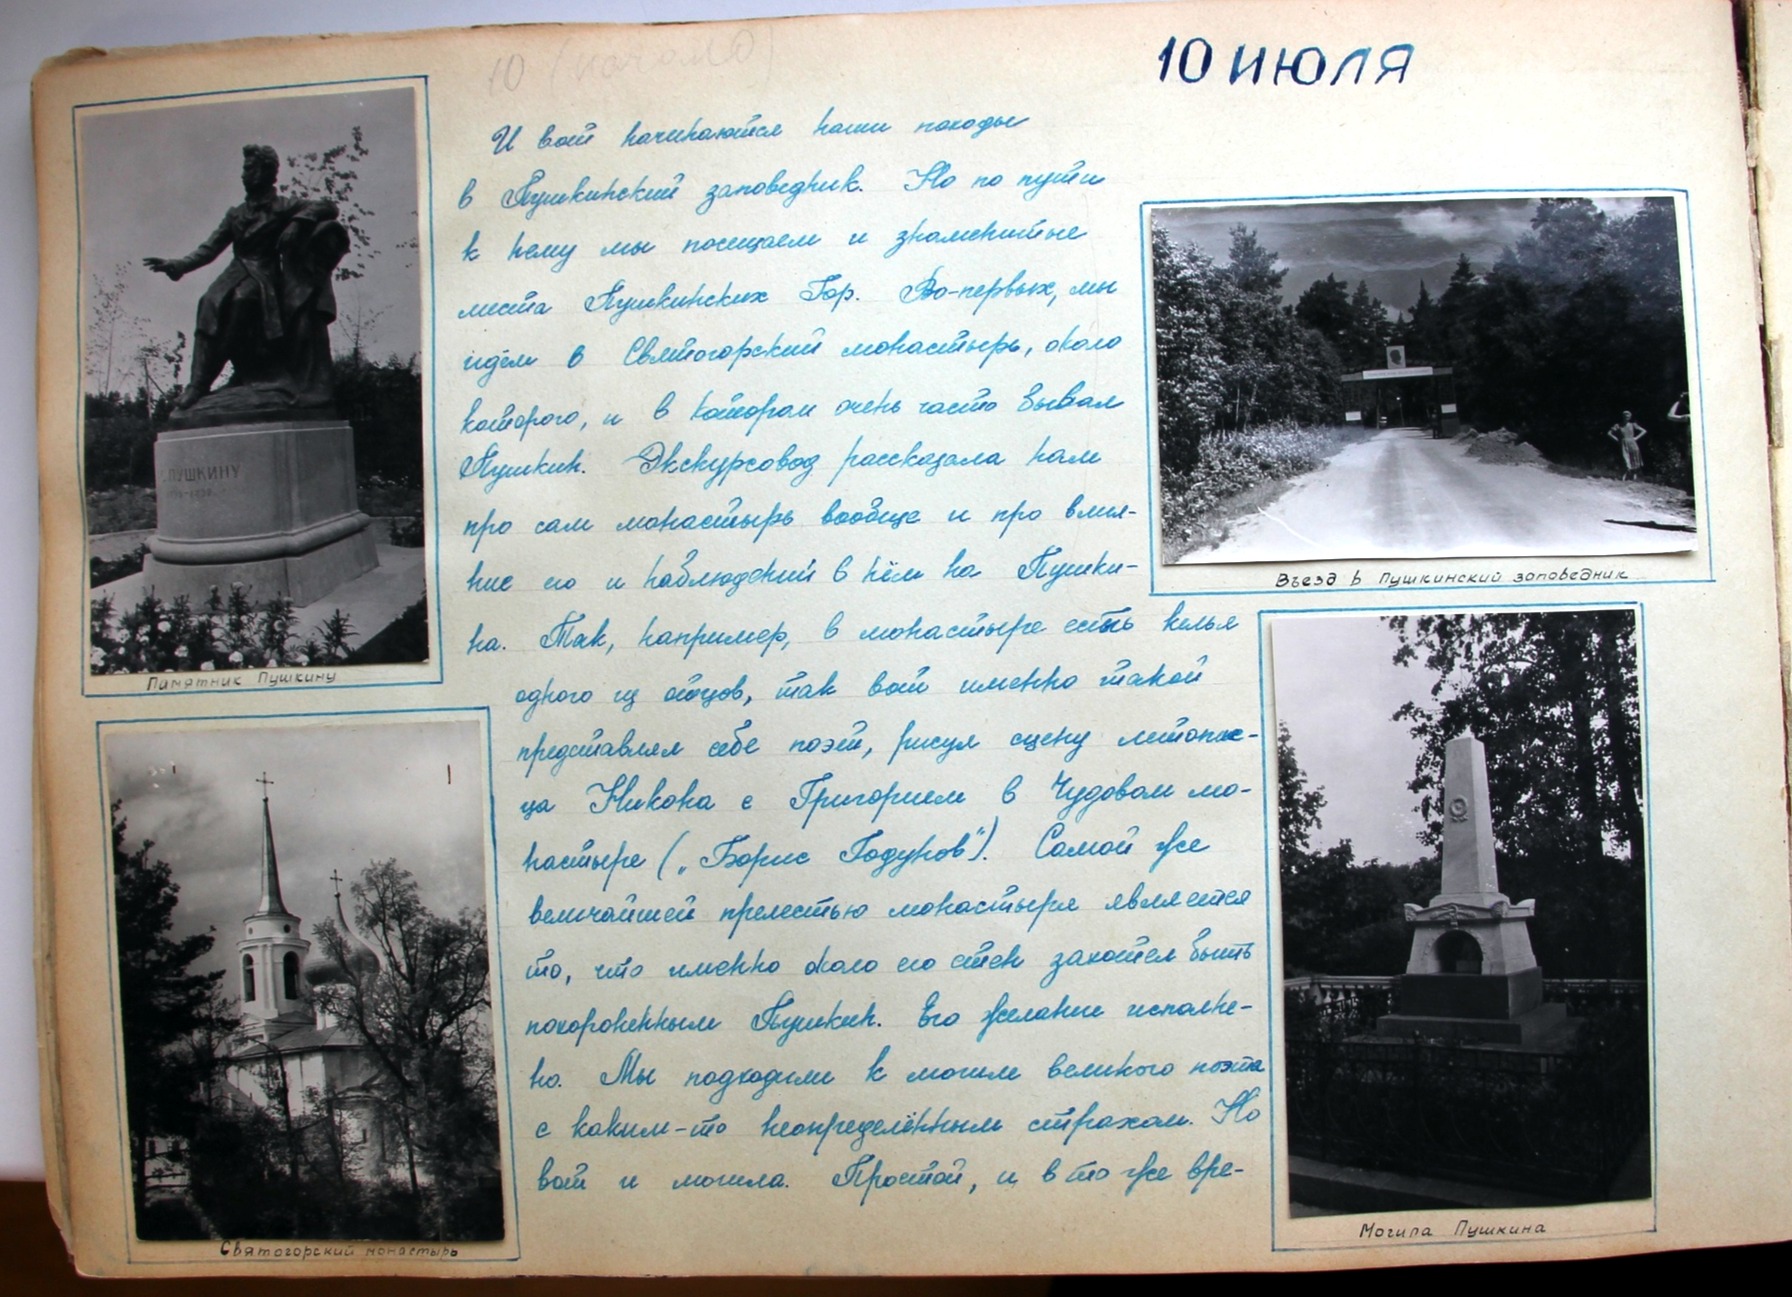 10 (начало)
10 ИЮЛЯ
И вот начинаются наши походы
в Пушкинский заповедник. Но по пути
к нему мы посещаем и знаменитые
места Пушкинских Гор. Во-первых, мы
идём в Святогорский монастырь, около
которого, и в котором очень часто бывал
Пушкин. Экскурсовод рассказала нам
про сам монастырь вообще и про влия-
ние его и наблюдений в нём на Пушки-
на. Так, например, в монастыре есть келья
одного из отцов, так вот именно такой
представлял себе поэт, рисуя сцену летопис-
ца Никона с Григорием в Чудовом мо-
настыре („Борис Годунов"). Самой же
величайшей прелестью монастыря является
то, что именно около его стен захотел быть
похороненным Пушкин. Его желание исполне-
но. Мы подходим к могиле великого поэта
с каким-то неопределённым страхом. Но
вот и могила. Простой, и в то же вре-
ПУШКИНУ
Памятник Пушкину
Святогорский монастырь
Въезд в Пушкинский заповедник
Могила Пушкина